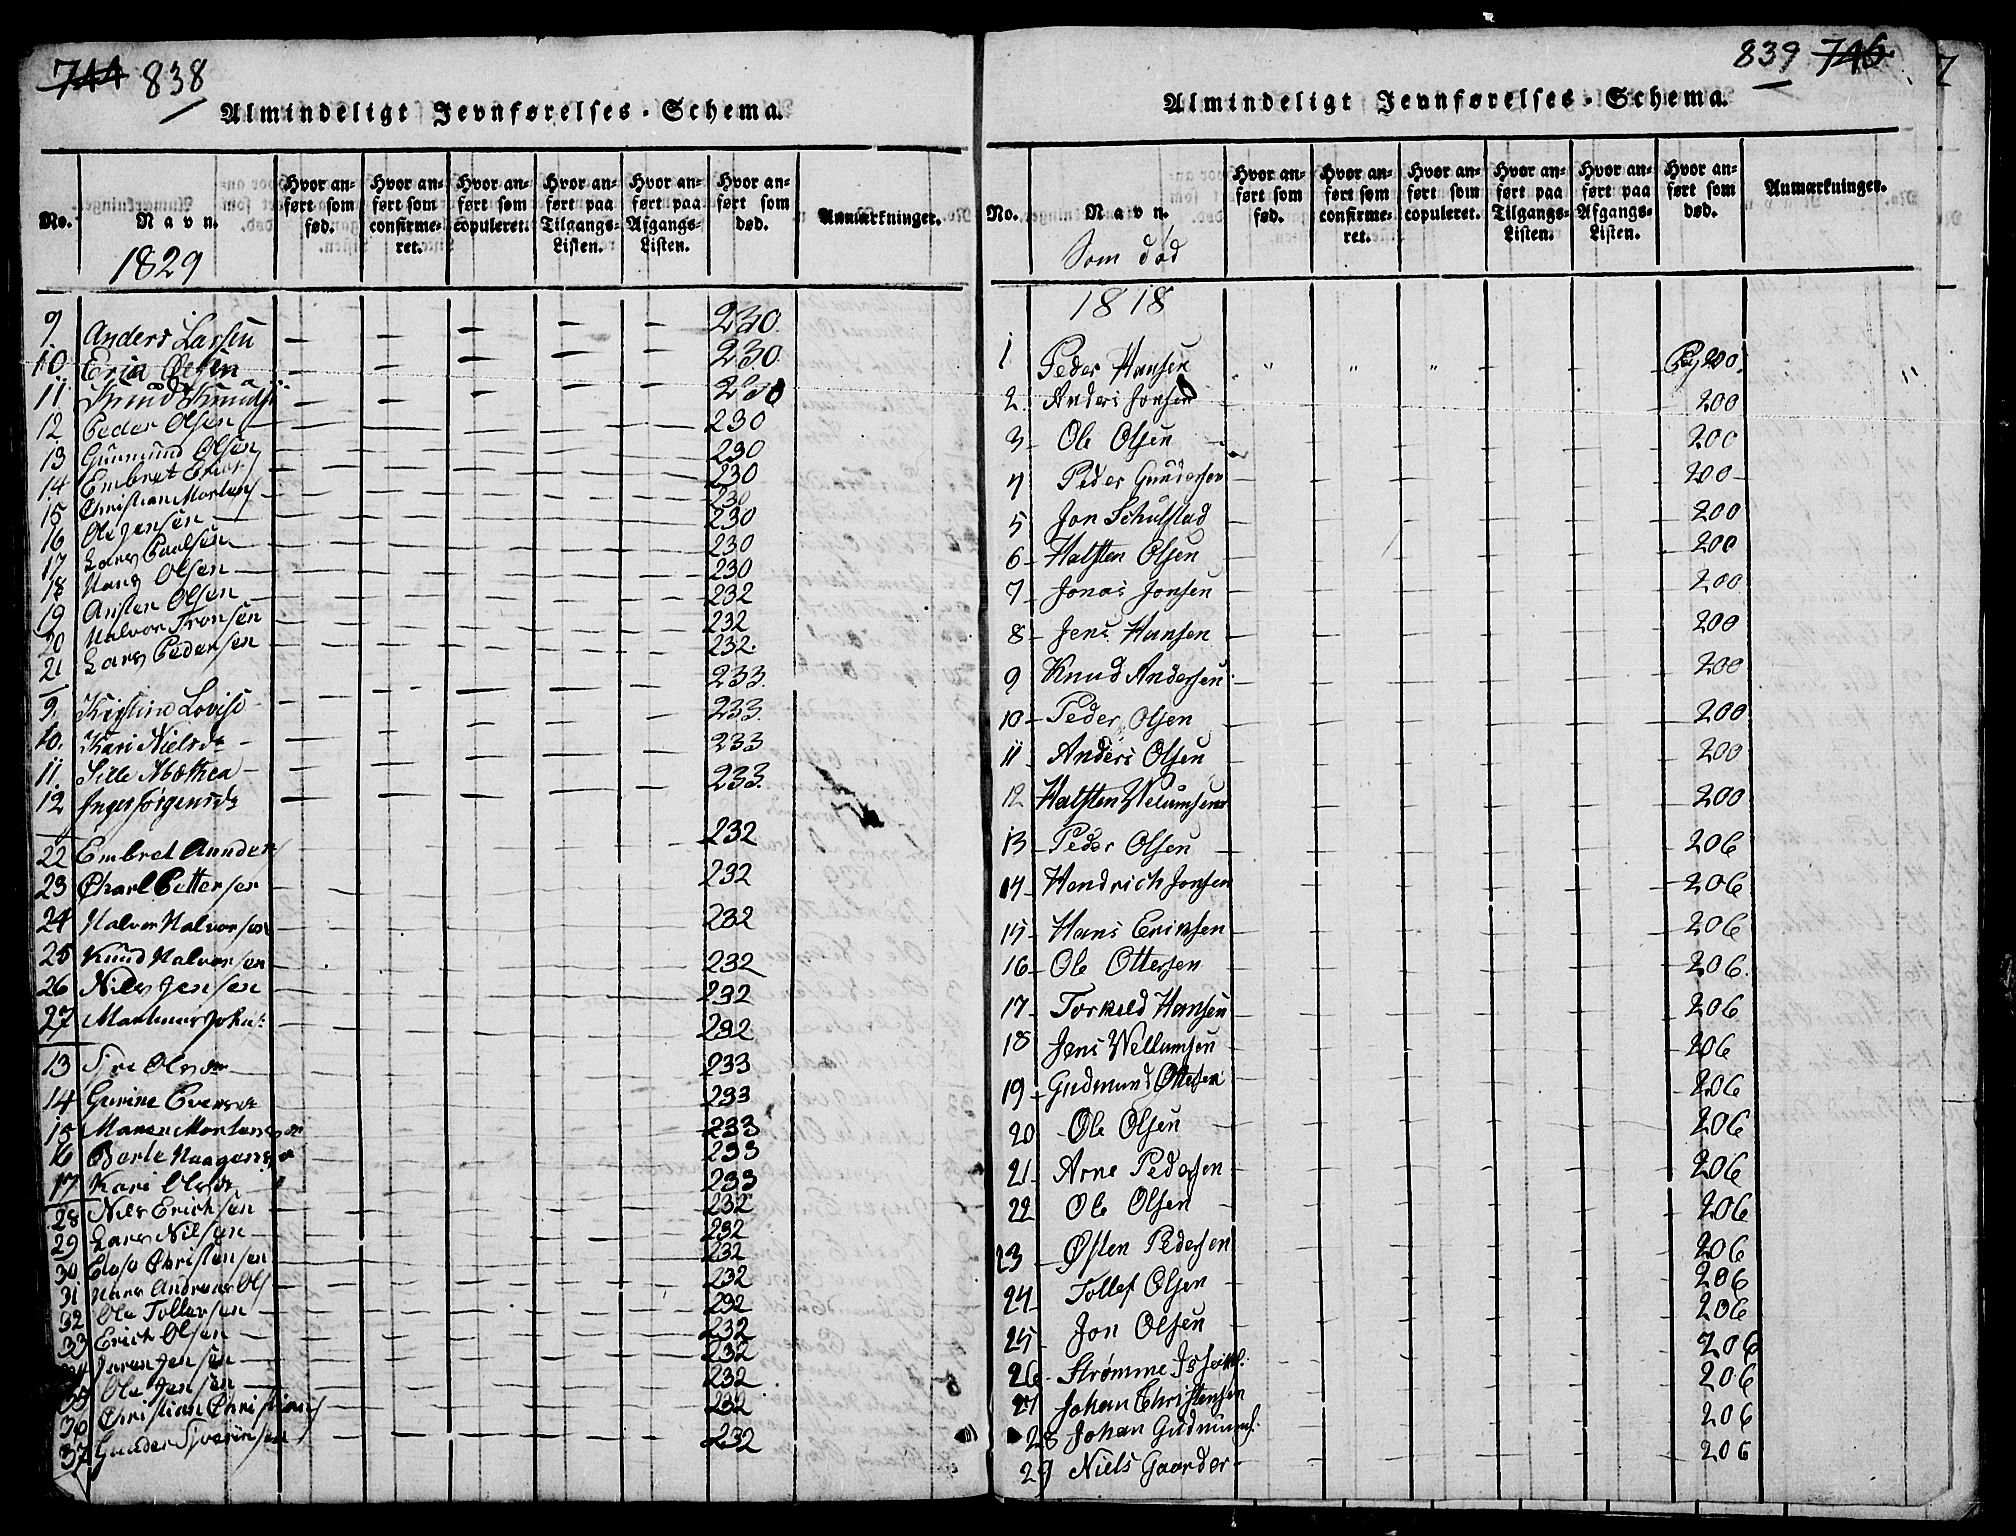 744 838
Almindeligt Jevnførelses-Schema.
No.
Navn.
1829
Hvor anført som fød.
Hvor anført som confirmeret.
Hvor anført som copuleret.
Hvor anført paa Tilgangs-Listen.
Hvor anført paa Afgangs-Listen.
Hvor anført som død.
Anmærkninger.
9. Anders Larsen 230.
10 Eric Olsen 230
11 Knud Knuds 230
12 Peder Olsen 230
13 Gunmund Olsen 230
14 Embret Erics 230
15 Christian Mortens 230
16 Ole Jensen 230
17 Lars Paulsen 230
18 Hans Olsen 230
19 Ansten Olsen 232
20 Halvor Tronsen 232
21 Lars Pedersen 232.
9. Kristine Lovise 233.
10. Kari Nielsdr 233.
11. Sille Mathea 233
12 Inger Jörgensdr 233.
22 Embret Aunders 232
23 Charl Pettersen 232
24 Halvor Halvorsen 232
25 Knud Halvorsen 232
26 Nils Jensen 232
27 Martinus Johs: 232
13 Siri Olsdr 233
14 Gurine Evensdr 233
15 Maren Mortensdr 233
16 Berte Haagensdr 233
17 Kari Olsdr 233
28 Nils Erichsen 232
29 Lars Nilsen 232
30 Christensen 232
31 Hans Andreas Ols 232
32 Ole Tollevsen 232
33 Erich Olsen 232
34 Jensen 232
35 Ole Jensen 232
36 Christian Christians 232
37 Gunder Syversen 232
839 746
Almindeligt Jevnførelses-Schema.
No.
Navn.
Som död
Hvor anført som fød.
Hvor anført som confirmeret.
Hvor anført som copuleret.
Hvor anført paa Tilgangs-Listen.
Hvor anført paa Afgangs-Listen.
Hvor anført som død.
Anmærkninger.
1818
1 Peder Hansen Pag 200.
2. Anders Jonsen 200
3 Ole Olsen 200
4 Peder Gundersen 200
5 Jon Schulstad 200
6 Halsten Olsen 200
7 Jonas Jonsen 200
8 Jens Hansen 200
9 Knud Andersen 200
10 Peder Olsen 200
11 Anders Olsen 200
12 Halsten Welumsen 200
13 Peder Olsen 206
14 Hendrich Jonsen 206
15 Hans Eriksen 206
16 Ole Ottersen 206.
17 Torkeld Hansen 206
18 Jens Wellumsen 206
19 Gudmund Ottesen 206
20 Ole Olsen 206
21 Arne Pedersen 206
22 Ole Olsen 206
23 Østen Pedersen 206
24 Tollef Olsen 206
25 Jon Olsen 206
26 Strømme 206
27 Johan Christensen 206
28 Johan Gudmunds. 206
29 Niels Gaarder 206